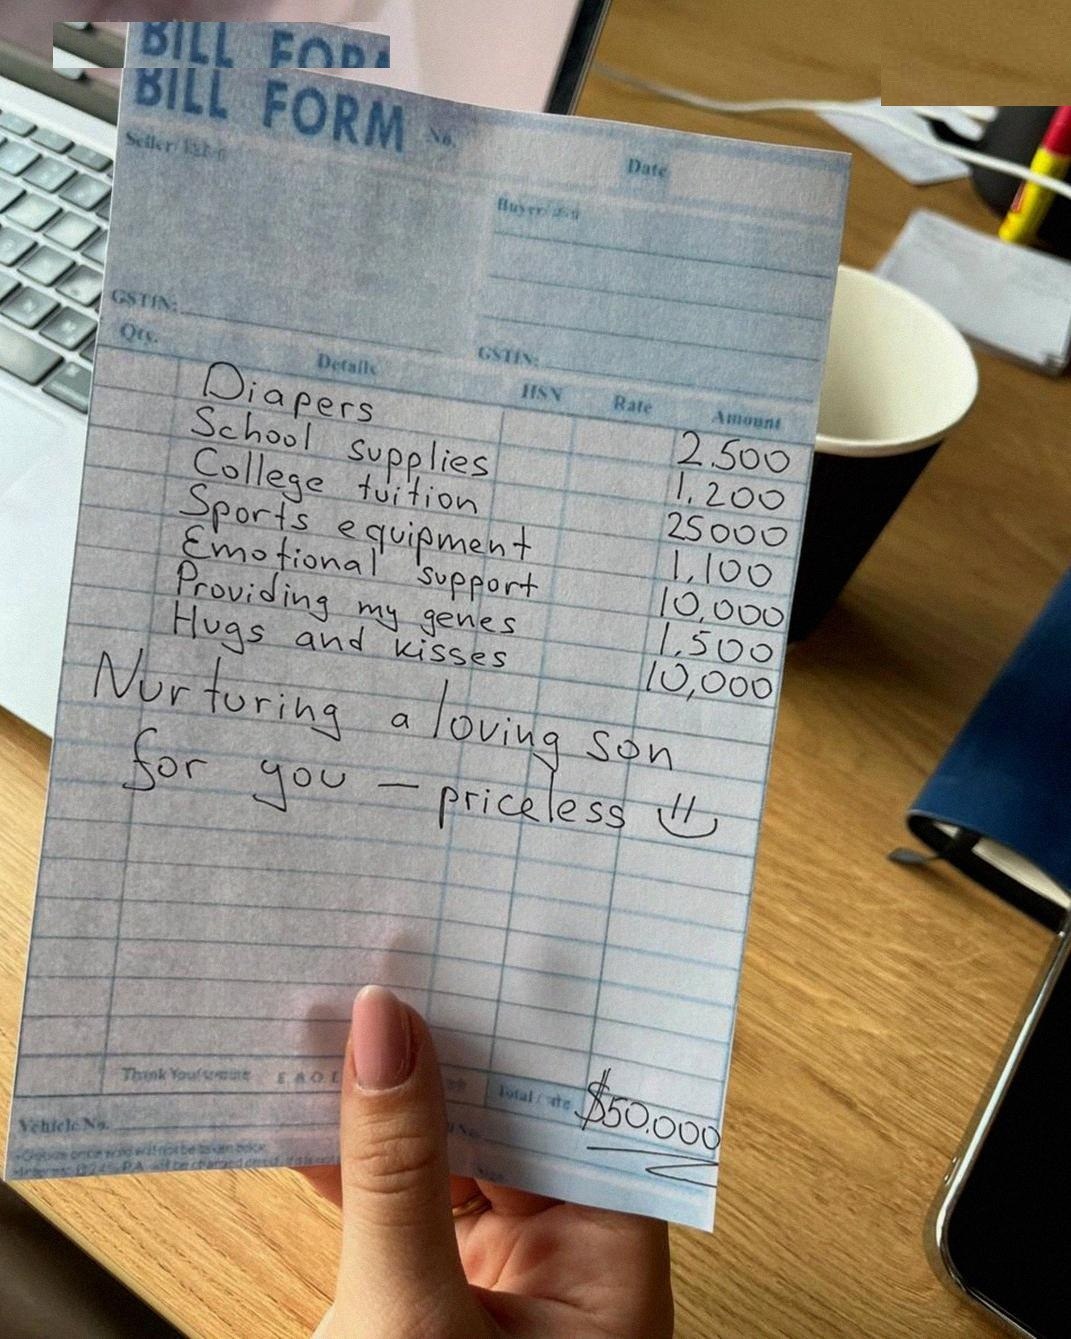 BILL FORM
BILL FORM No.
Date
Seller/
Buyer/
GSTIN:
GSTIN:
Qty. Details HSN Rate Amount
Diapers 2.500
School supplies 1.200
College tuition 25000
Sports equipment 1,100
Emotional support 10,000
Providing my genes 1,500
Hugs and kisses 10,000
Nurturing a loving son
for you — priceless
Thank You! E & O E
Total / $50.000
Vehicle No.